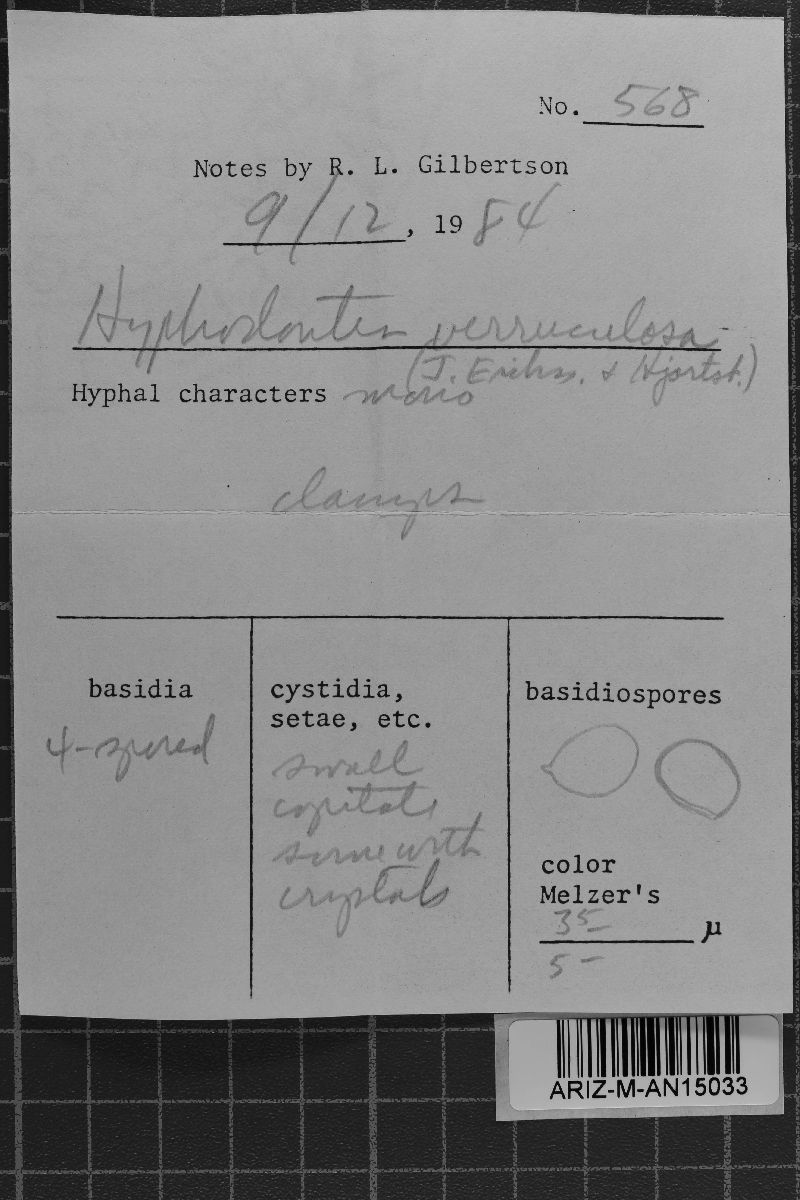 No. 568
Notes by R. L. Gilbertson
9/12, 1984
Hyphodontia verruculosa
(J. Erikss. & Hjortst.)
Hyphal characters mono
clamps
basidia
4-spored
cystidia,
setae, etc.
small
capitate
some with
crystals
basidiospores
color
Melzer's
35- µ
5-
ARIZ-M-AN15033